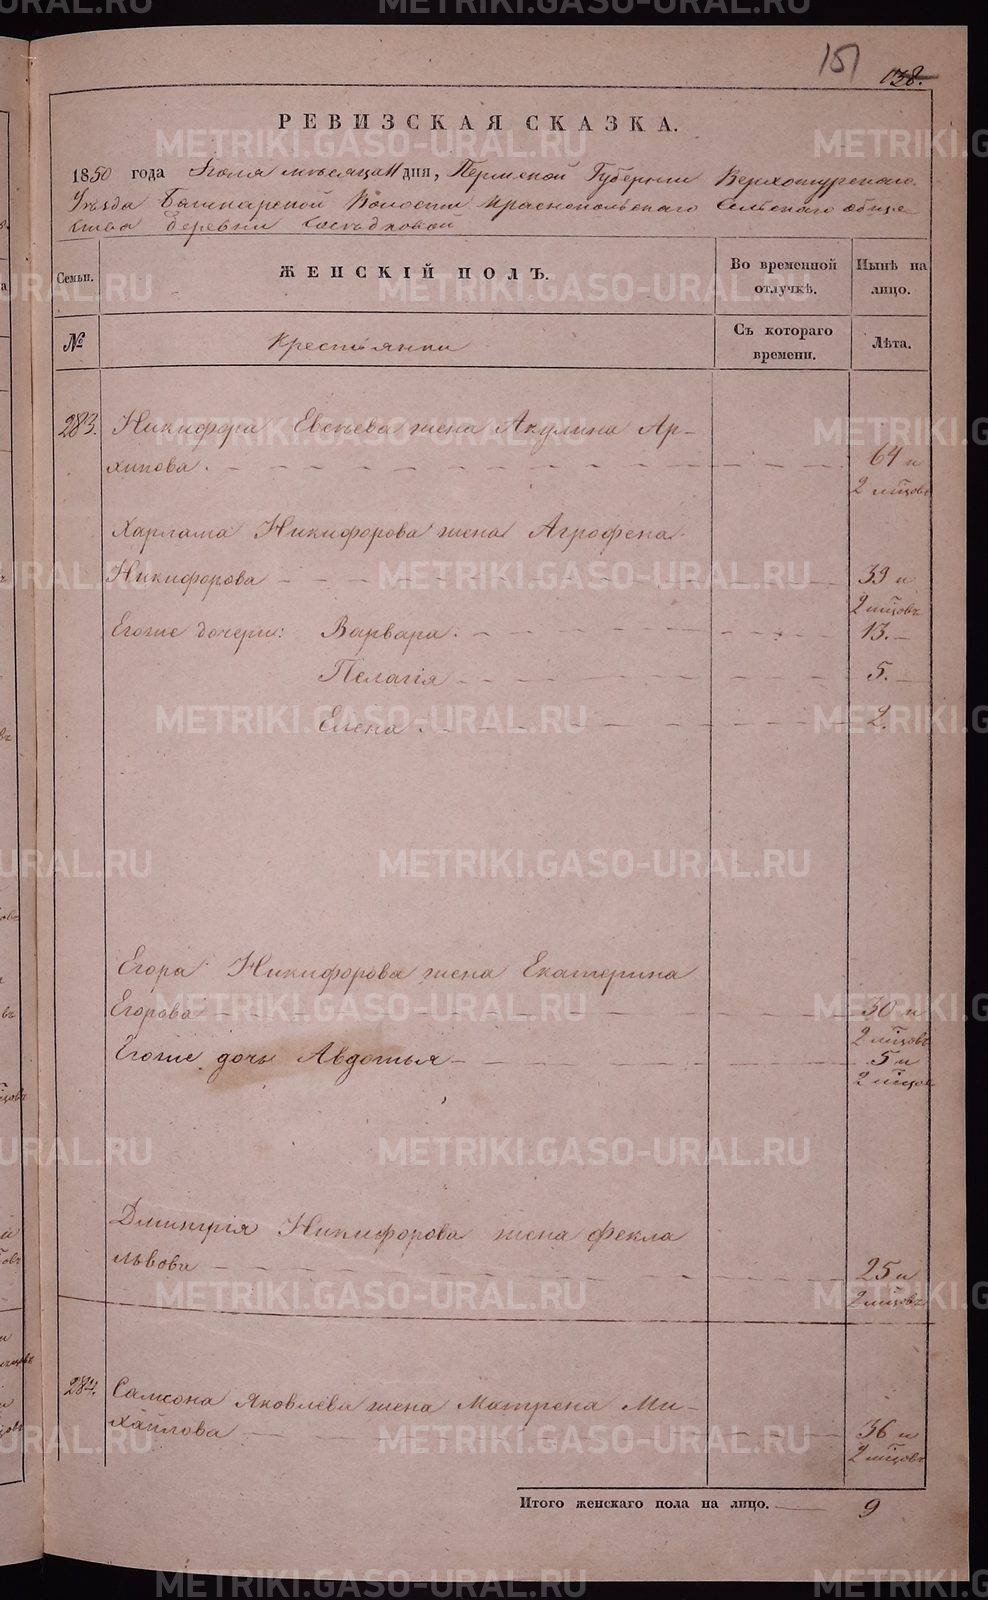 151
138.
РЕВИЗСКАЯ СКАЗКА.
1850 года Июля месяца 11 дня, Пермской Губернии Верхотурскаго
Уезда Башкарской Волости Краснопольскаго Сельскаго обще
ства Деревни
Семьи. ЖЕНСКІЙ ПОЛЪ. Во временной отлучкѣ. Нынѣ на лицо.
№ Крестьянки Съ котораго времени. Лѣта.
283. Никифора Евсѣева жена Акулина Ар-
хипова. 64 и
2 мѣсцовъ
Харлама Никифорова жена Агрофена
Никифорова 39 и
2 мѣсцовъ
Егоже дочери: Варвара. 13.
Пелагія 5.
Елена. 2.
Егора Никифорова жена Екатерина
Егорова 30 и
2 мѣсцовъ
Егоже дочь Авдотья 5 и
2 мѣсцов
Дмитрія Никифорова жена Фекла
Львова 25 и
2 мѣсцовъ
284. Самсона Яковлева жена Матрена Ми-
хайлова 36 и
2 мѣсцовъ
Итого женскаго пола на лицо. 9
METRIKI.GASO-URAL.RU